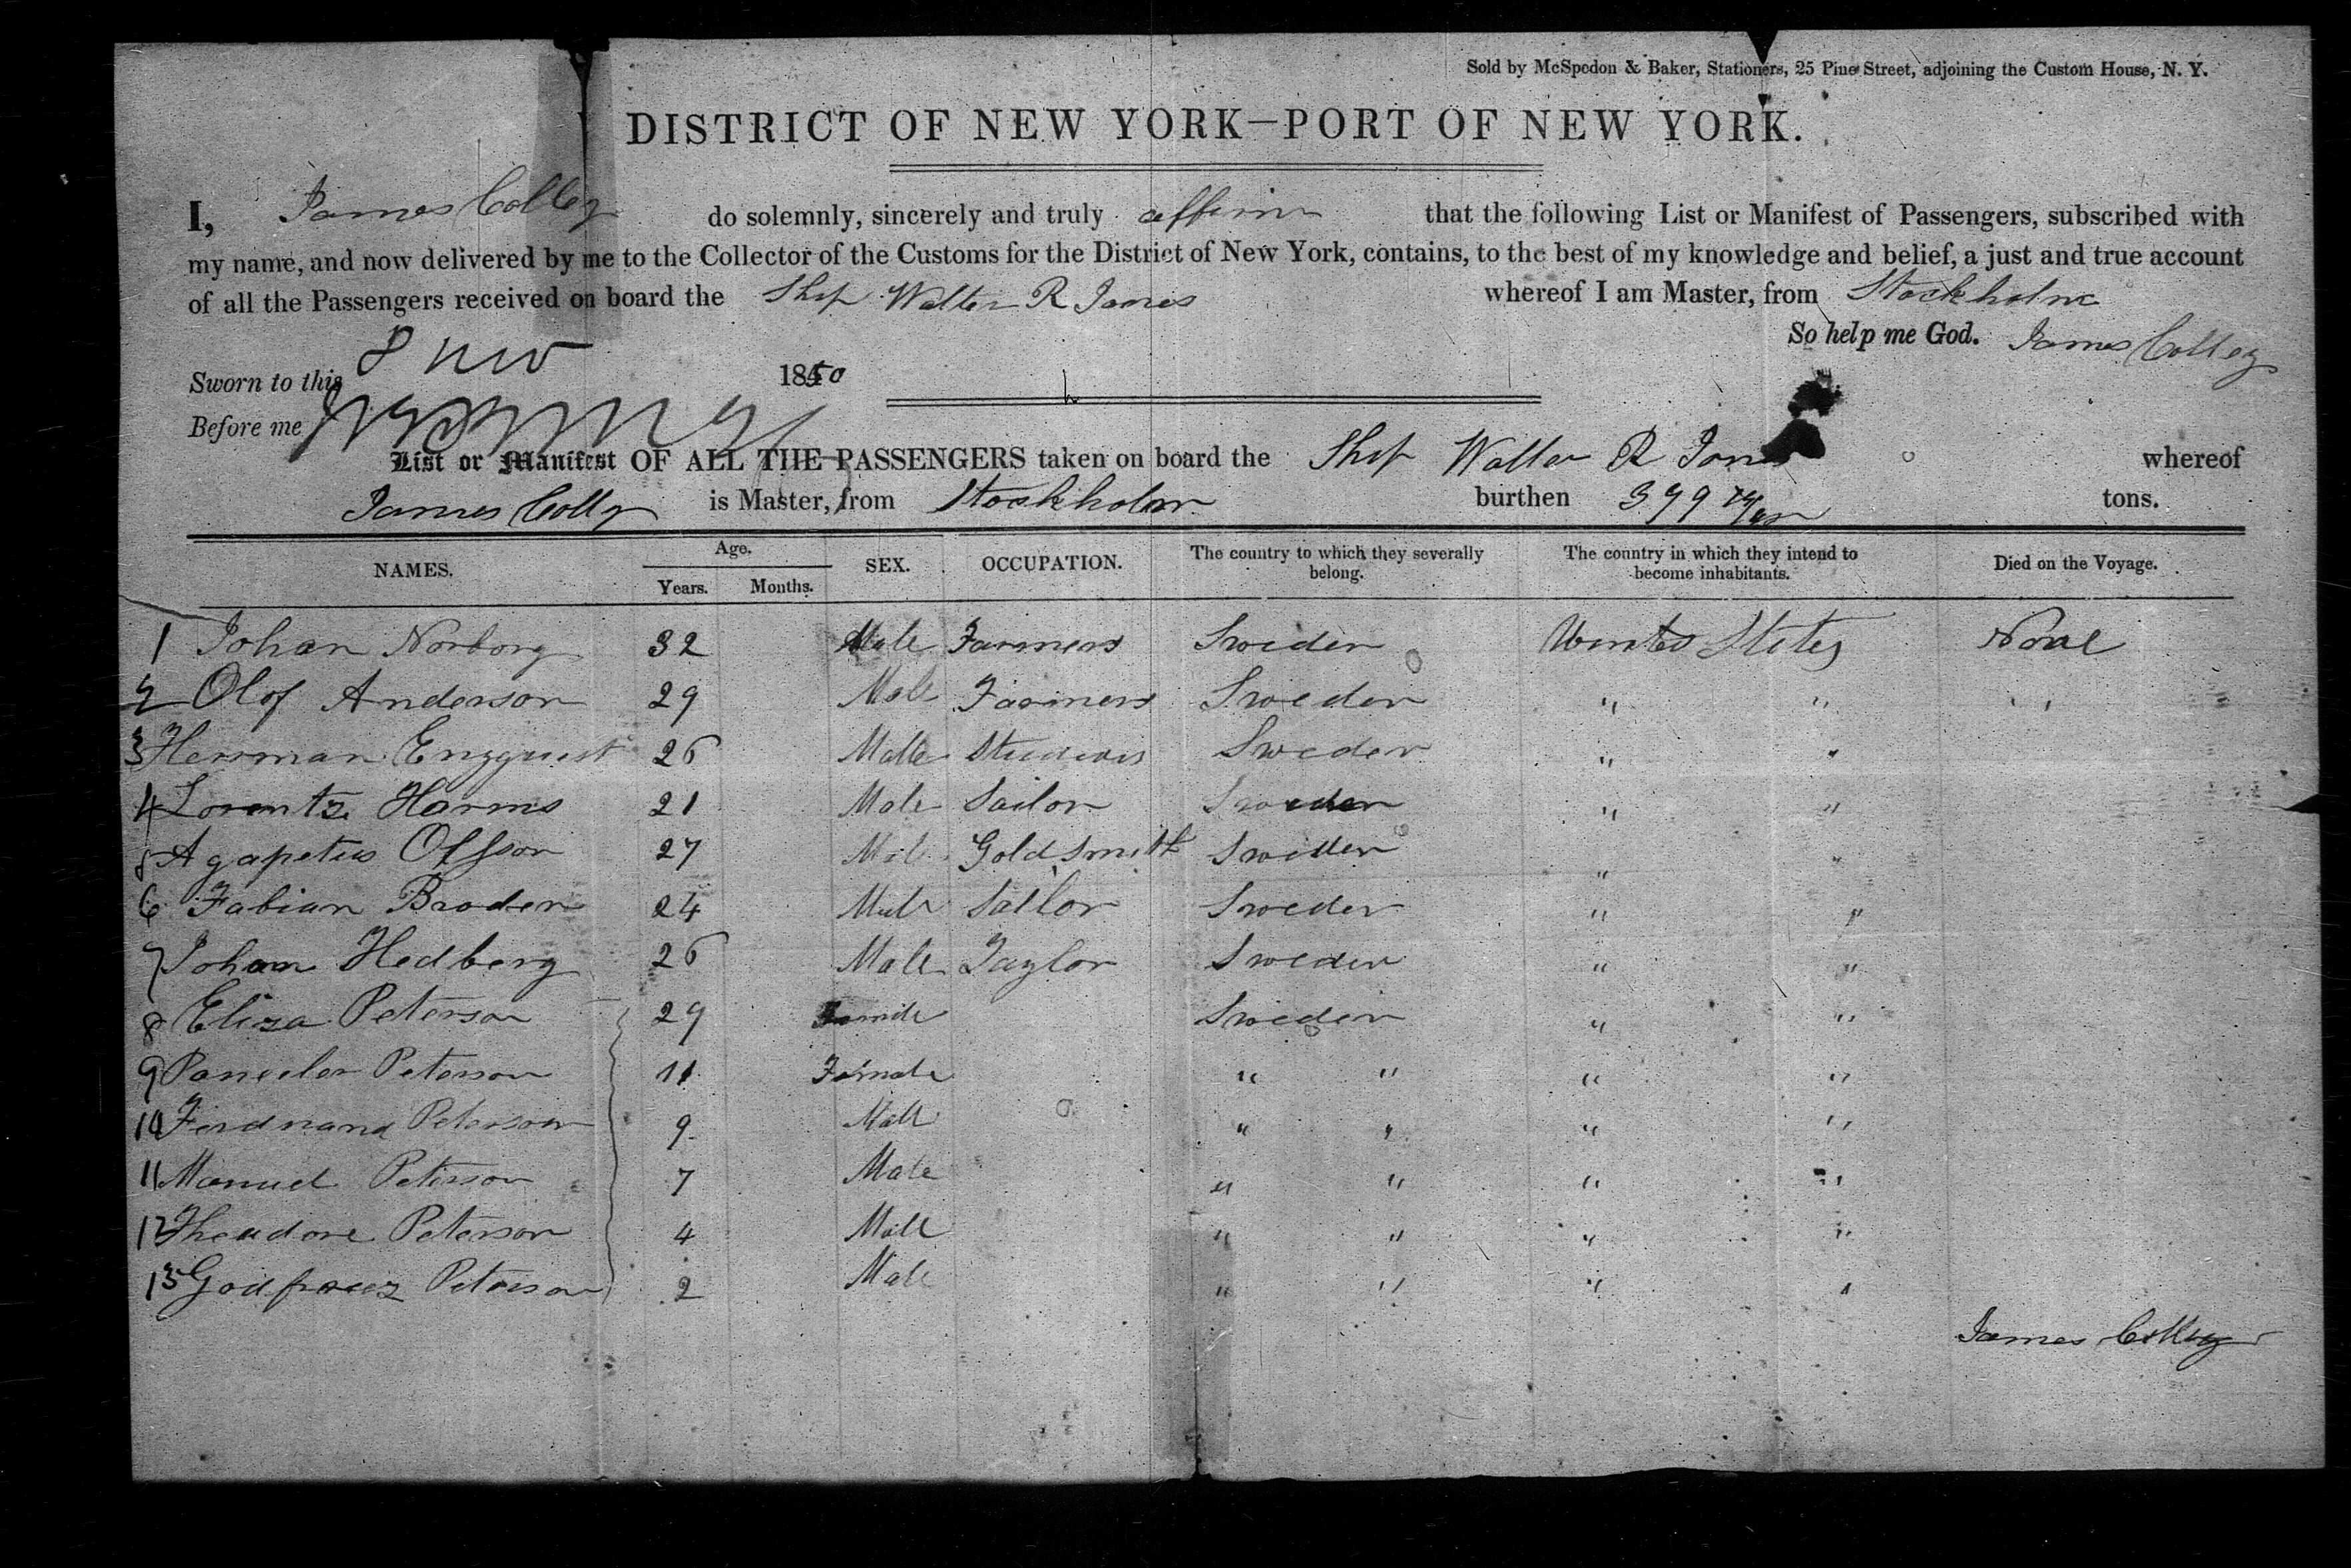 Sold by McSpedon & Baker, Stationers, 25 Pine Street, adjoining the Custom House, N. Y.
DISTRICT OF NEW YORK—PORT OF NEW YORK.
I, James Colley do solemnly, sincerely and truly affirm that the following List or Manifest of Passengers, subscribed with
my name, and now delivered by me to the Collector of the Customs for the District of New York, contains, to the best of my knowledge and belief, a just and true account
of all the Passengers received on board the Ship Walter R Jones whereof I am Master, from Stockholm
So help me God. James Colley
Sworn to this 8 Nov 1850
Before me
List or Manifest OF ALL THE PASSENGERS taken on board the Ship Walter R Jones whereof
James Colley is Master, from Stockholm burthen 399 tons.
NAMES. Age. SEX. OCCUPATION. The country to which they severally belong. The country in which they intend to become inhabitants. Died on the Voyage.
Years. Months.
1 Johan Norborg 32 Male Farmers Sweden United States None
2 Olof Anderson 29 Male Farmers Sweden " " "
3 Herrman Engquist 26 Male Sweden " "
4 Lorentz Harms 21 Male Sailor Sweden " "
5 Agapetus Olsson 27 Male Goldsmith Sweden " "
6 Fabian Broden 24 Male Sailor Sweden " "
7 Johan Hedberg 26 Male Taylor Sweden " "
8 Eliza Peterson 29 Female Sweden " "
9 Peterson 11 Female " " " "
10 Ferdnand Peterson 9 Male " " " "
11 Manuel Peterson 7 Male " " " "
12 Theadore Peterson 4 Male " " " "
13 Peterson 2 Male " " " "
James Colley